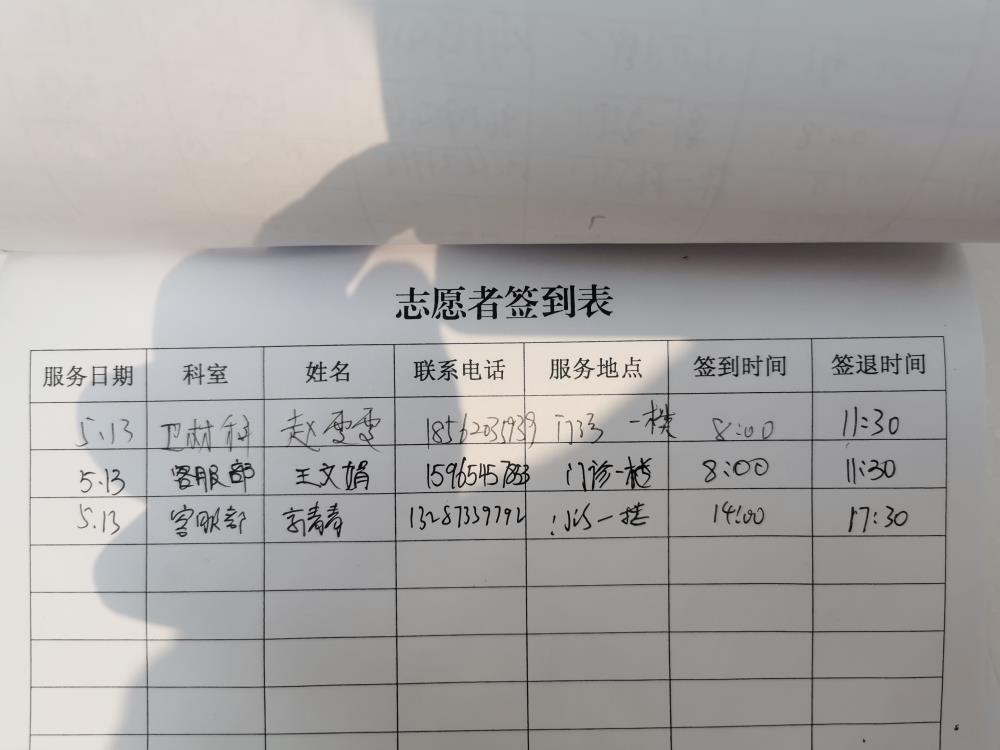 志愿者签到表
服务日期 科室 姓名 联系电话 服务地点 签到时间 签退时间
5.13 卫材科 赵雪雪 门诊一楼 8:00 11:30
5.13 客服部 王文娟 门诊一楼 8:00 11:30
5.13 客服部 青青 13287339792 一楼 14:00 17:30